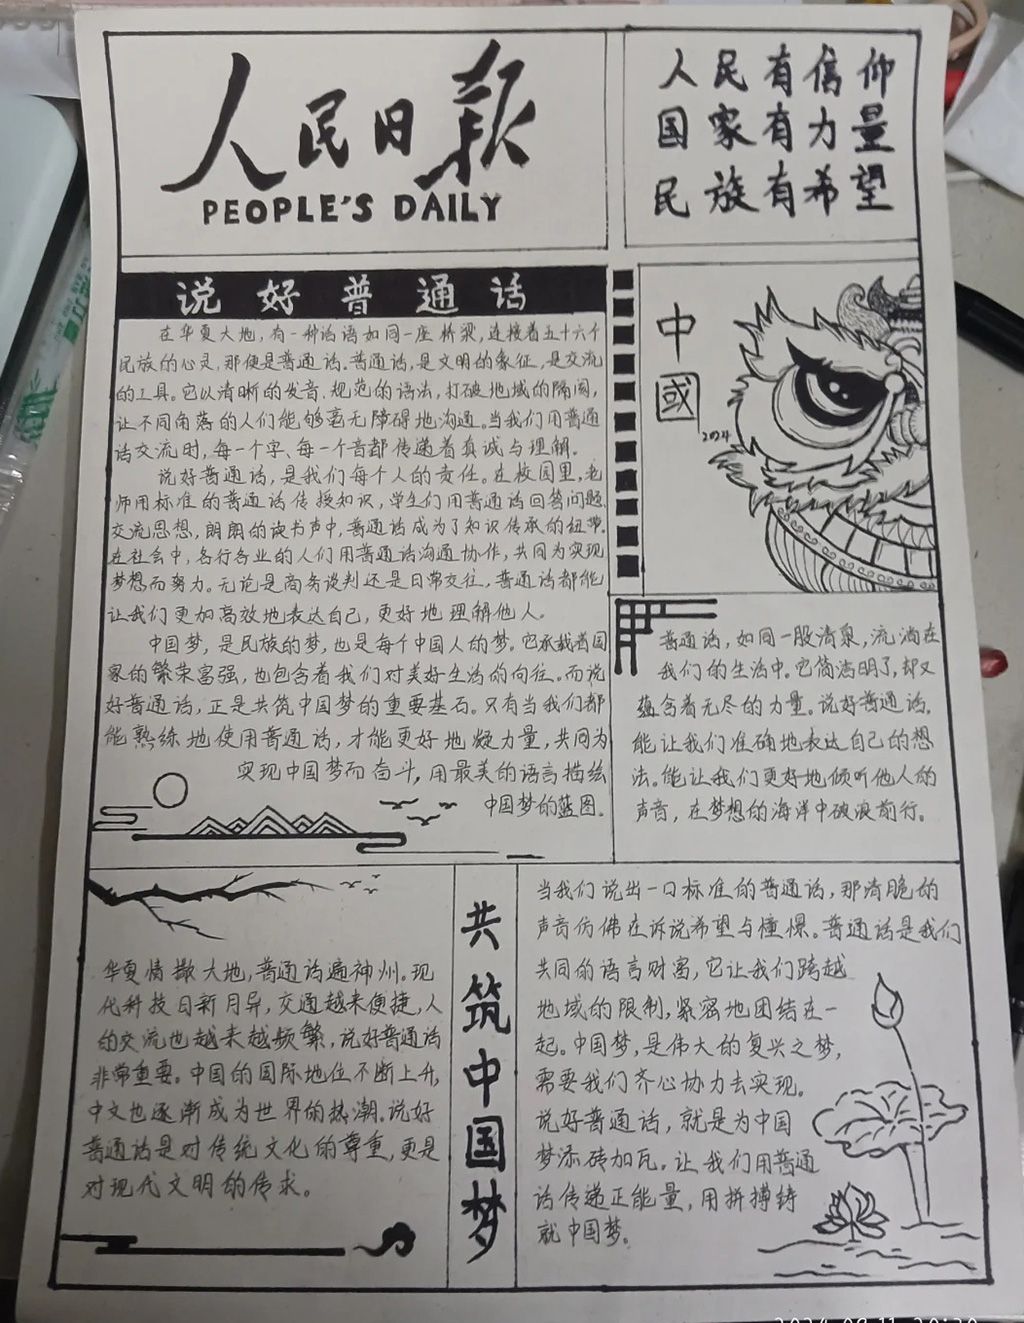 人民日报
PEOPLE'S DAILY
人民有信仰
国家有力量
民族有希望
说好普通话
在华夏大地，有一种话语如同一座桥梁，连接着五十六个
民族的心灵，那便是普通话。普通话，是文明的象征，是交流
的工具。它以清晰的发音、规范的语法，打破地域的隔阂，
让不同角落的人们能够毫无障碍地沟通。当我们用普通
话交流时，每一个字、每一个音都传递着真诚与理解。
说好普通话，是我们每个人的责任。在校园里，老
师用标准的普通话传授知识，学生们用普通话回答问题、
交流思想，朗朗的读书声中，普通话成为了知识传承的纽带。
在社会中，各行各业的人们用普通话沟通协作，共同为实现
梦想而努力。无论是商务谈判还是日常交往，普通话都能
让我们更加高效地表达自己，更好地理解他人。
中国梦，是民族的梦，也是每个中国人的梦。它承载着国
家的繁荣富强，也包含着我们对美好生活的向往。而说
好普通话，正是共筑中国梦的重要基石。只有当我们都
能熟练地使用普通话，才能更好地凝力量，共同为
实现中国梦而奋斗，用最美的语言描绘
中国梦的蓝图。
中
國
2024
普通话，如同一股清泉，流淌在
我们的生活中。它简洁明了，却又
蕴含着无尽的力量。说好普通话，
能让我们准确地表达自己的想
法。能让我们更好地倾听他人的
声音，在梦想的海洋中破浪前行。
华夏情撒大地，普通话遍神州。现
代科技日新月异，交通越来便捷，人
的交流也越来越频繁，说好普通话
非常重要。中国的国际地位不断上升，
中文也逐渐成为世界的热潮。说好
普通话是对传统文化的尊重，更是
对现代文明的传求。
共筑中国梦
当我们说出一口标准的普通话，那清脆的
声音仿佛在诉说希望与憧憬。普通话是我们
共同的语言财富，它让我们跨越
地域的限制，紧密地团结在一
起。中国梦，是伟大的复兴之梦，
需要我们齐心协力去实现。
说好普通话，就是为中国
梦添砖加瓦。让我们用普通
话传递正能量，用拼搏铸
就中国梦。